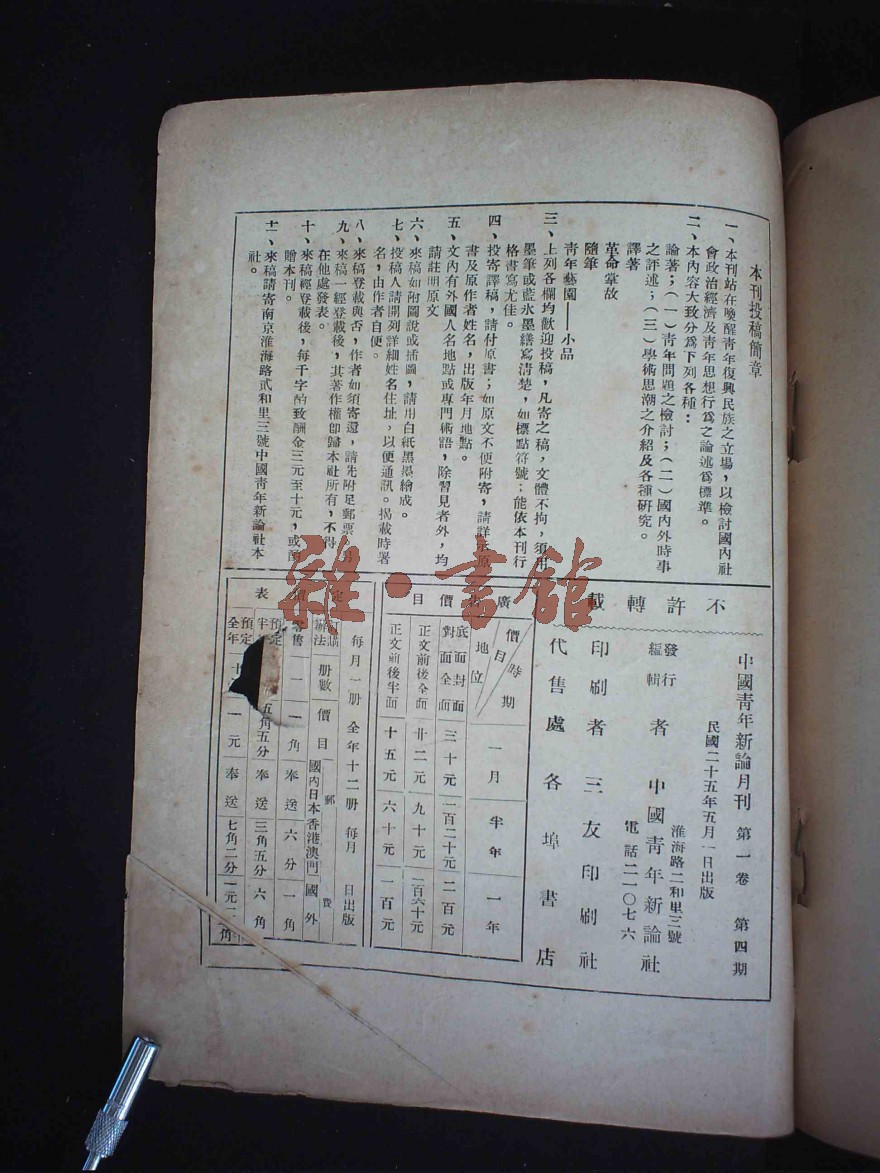 本刊投稿簡章
一、本刊站在喚醒靑年復興民族之立場，以檢討國內社
會政治經濟及靑年思想行爲之論述爲標準。
二、本內容大致分爲下列各種：
論著；（一）靑年問題之檢討；（二）國內外時事
之評述；（三）學術思潮之介紹及各種硏究。
譯著
革命掌故
隨筆
靑年藝園——小品
三、上列各欄均歡迎投稿，凡寄之稿，文體不拘，須用
墨筆或藍氷墨繕寫淸楚，如標點符號；能依本刊行
格書寫尤佳。
四、投寄譯稿，請付原書；如原文不便附寄，請詳示原
書及原作者姓名，出版年月地點。
五、文內有外國人名地點或專門術語，除習見者外，均
請註明原文
六、來稿如附圖說或插圖，請用白紙黑墨繪成。
七、投稿人請開列詳細姓名住址，以便通訊。揭載時署
名，由作者自便。
八、來稿登載與否，作者如須寄還，請先附足郵票
九、來稿一經登載後，其著作權卽歸本社所有，不得
在他處發表。
十、來稿經登載後，每千字酌致酬金三元至十元，或酌
贈本刊。
十一、來稿請寄南京淮海路貳和里三號中國靑年新論社本
社。
不許轉載
中國靑年新論月刊 第一卷 第四期
民國二十五年五月一日出版
發行
編輯
者 中國靑年新論社
淮海路二和里三號
電話二一〇七六
印刷者 三友印刷社
代售處 各埠書店
廣 價目
價目 時期 地位 一月 半年 一年
底面封面
對面全面 三十元 一百二十元 二百元
正文前後全面 廿二元 九十元 一百六十元
正文前後半面 十五元 六十元 一百元
定 表
每月一册 全年十二册 每月 日出版
訂購辦法 册數 價目 郵費
國內日本 香港澳門 國外
零售 一 一角 奉送 六分 一角
預定半 五角五分 奉送 三角五分 六角
預定全年 一元 奉送 七角二分 一元二角
雜·書館